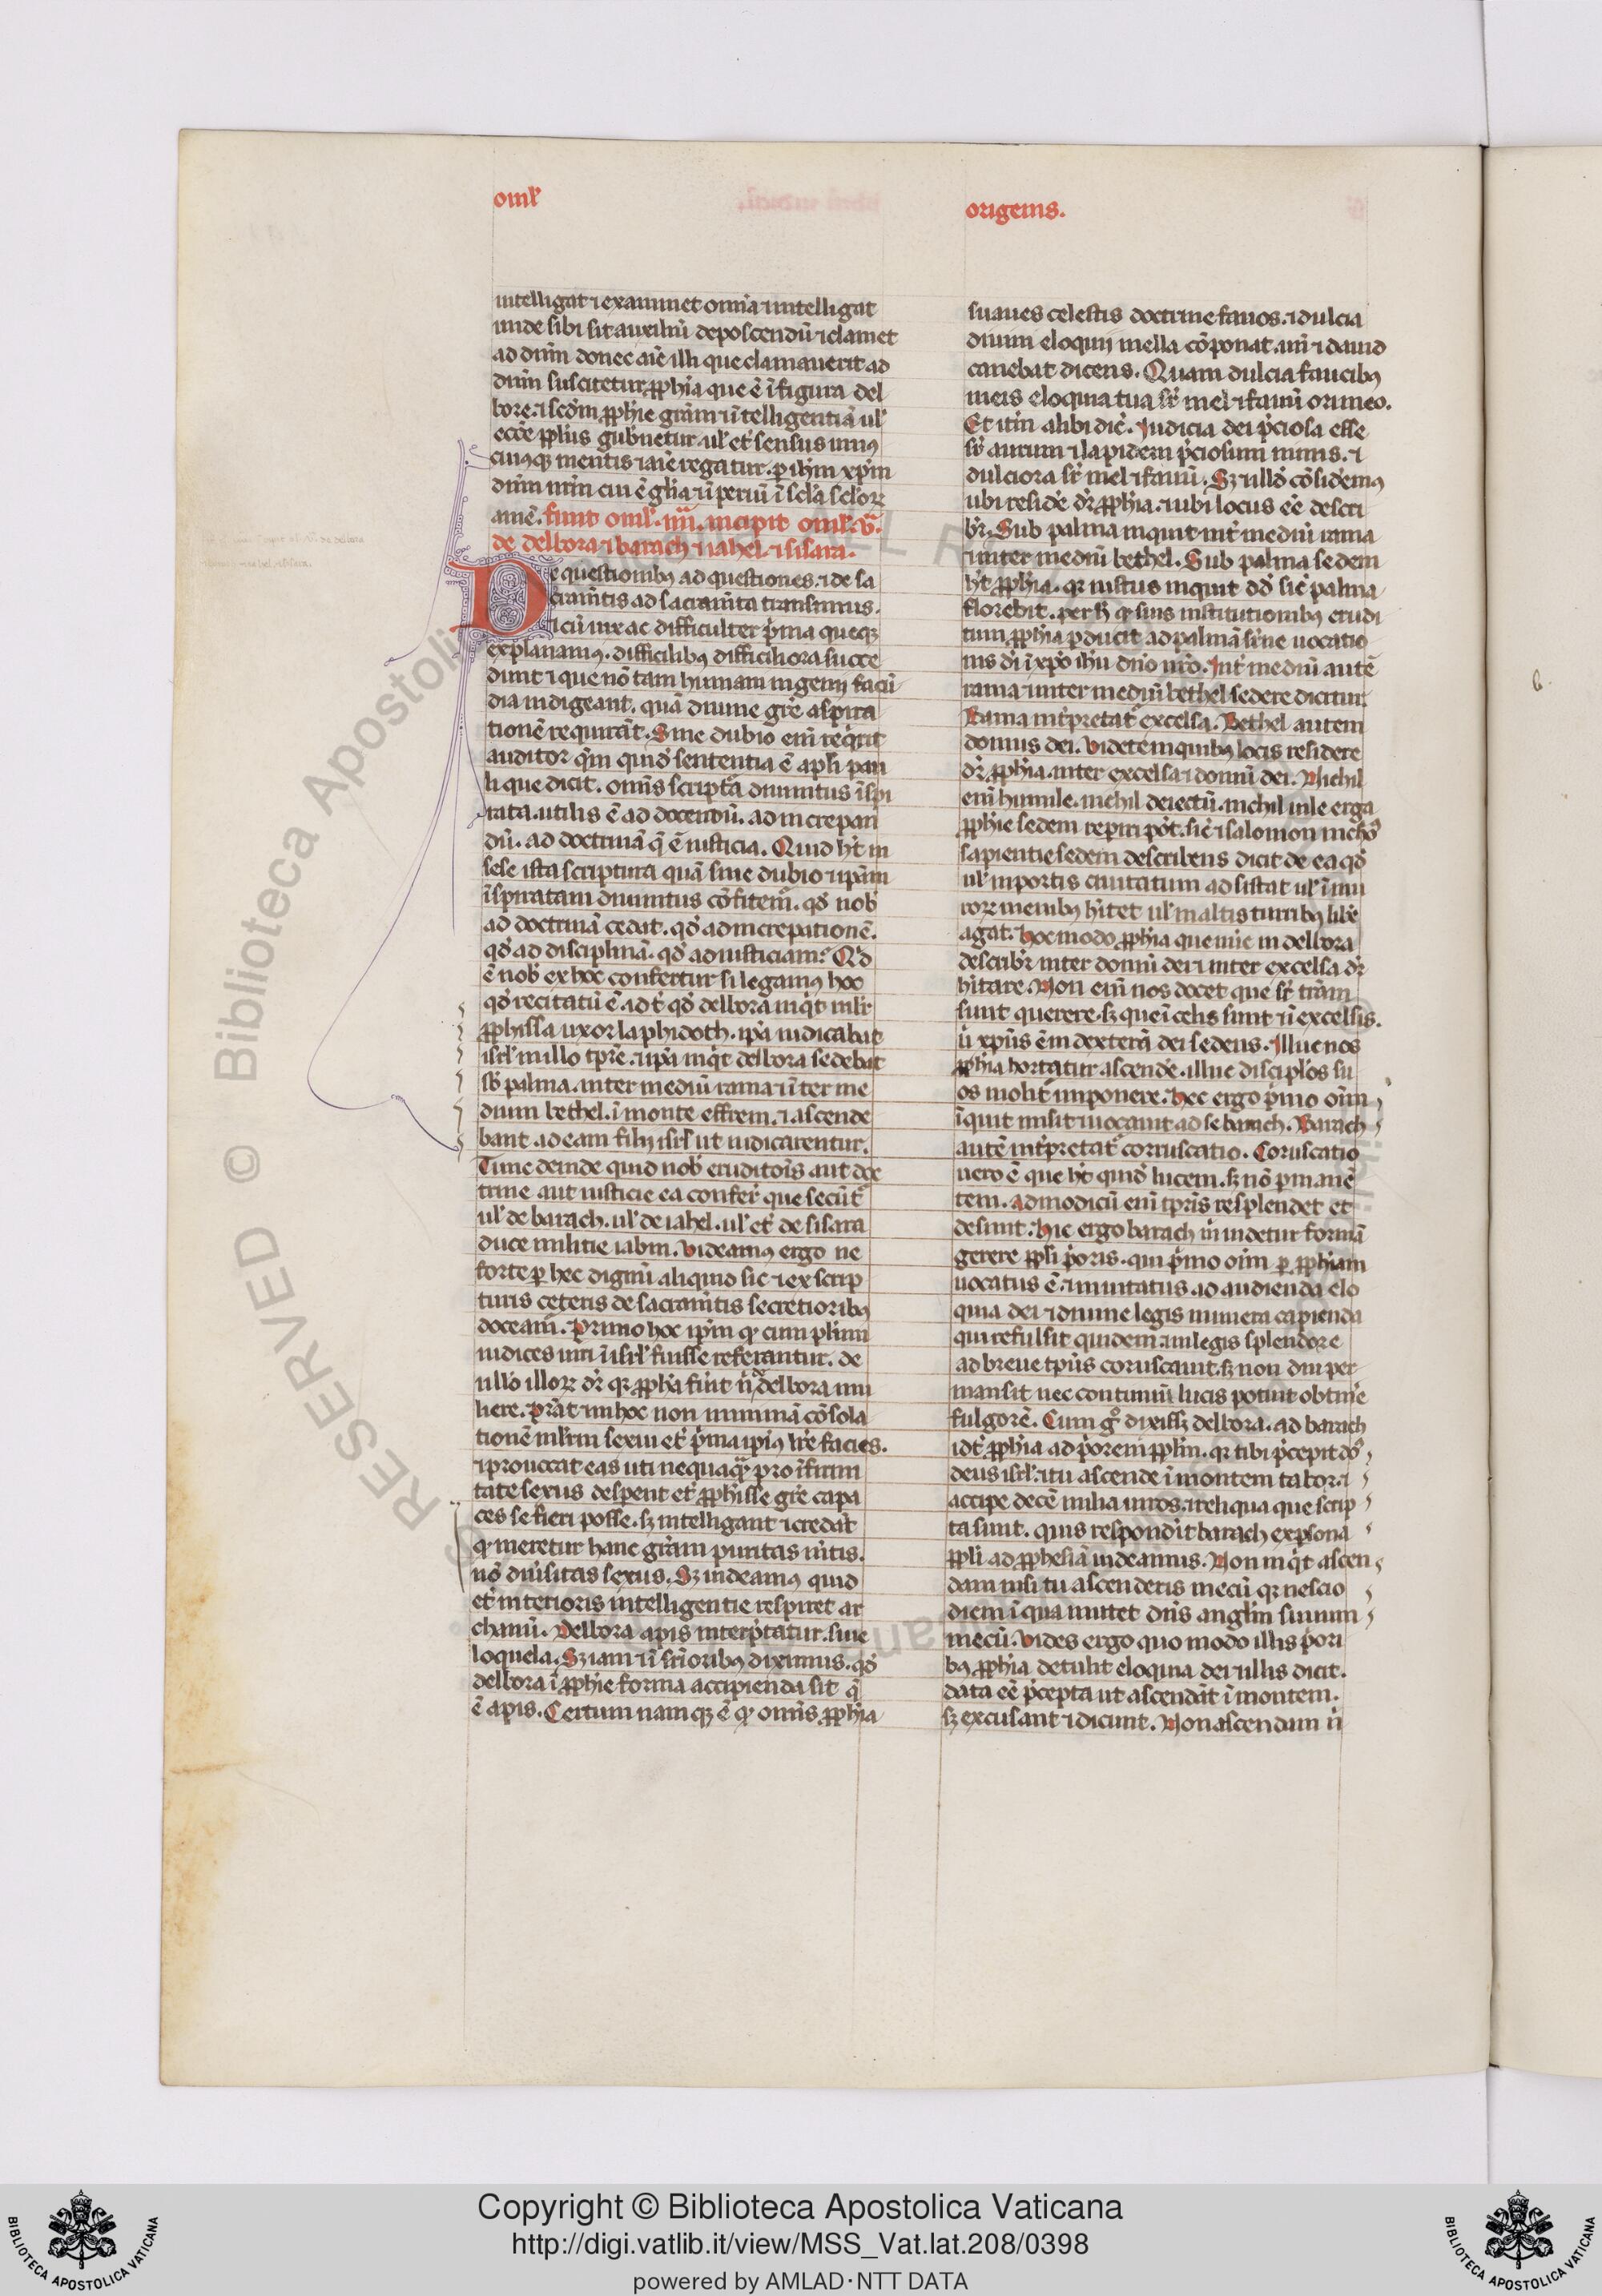 omł'
origenis.
intelligat ⁊ examinet omnia ⁊ intelligat
unde sibi sit auxiliū deposcendū ⁊ clamet
ad dn̄m donec aīe illi que clamauerit ad
dn̄m suscitetur ꝓph̄ia que ē ī figura del
bore. ⁊ scd̄m ꝓph̄ie grām ⁊ ītelligentiā ul'
ecc̄e ꝓpl̄us gub̄netur. ul' et̄ sensus uniꝰ
cuiꝰqꝫ mentis ⁊ aīe regatur. ꝑ ih̄m xp̄m
dn̄m nr̄m cui ē gl̄ia ⁊ īperiū ī scl̄a scl̄oꝝ
amē. finit omł'. iiii. incipit omł'. v̄.
de delbora ⁊ barach ⁊ iahel. ⁊ sisara.
De questionibꝰ ad questiones. ⁊ de sa
cram̄tis ad sacram̄ta transimus.
⁊ cū uix ac difficulter p̄ma queqꝫ
explanamꝰ. difficilibꝰ difficiliora succe
dunt ⁊ que nō tam humani ingenij facū
dia indigeant. quā diuine gr̄e aspira
tionē requirāt. Sine dubio eni req̄rit
auditor q̄m quid' sententia ē apl̄i pau
li que dicit. omīs script̄a diuinitus īspi
rata. utilis ē ad docendū. ad increpan
dū. ad doctrinā q̄ ē iusticia. Quid h̄t in
sese ista scriptura quā sine dubio ⁊ ip̄am
īspiratam diuinitus cōfitem̄. qd' nob'
ad doctrinā cedat. qd' ad increpationē.
qd' ad disciplinā. qd' ad iusticiam. Q'd
ē nob' ex hoc confertur si legamꝰ hoc
qd' recitatū ē. ad t̄ qd' delbora inq̄t mlīr
ꝓph̄issa uxor laphidoth. ip̄a iudicabat
isrl' in illo tp̄re. ⁊ ip̄a inq̄t delbora sedebat
sb' palma. inter mediū rama ⁊ īter me
dium bethel. ī monte effrem. ⁊ ascende
bant ad eam filij isrl' ut iudicarentur.
Tunc deinde quid nob' eruditōis. aut doc
trine aut iusticie ea confer̄ que secūt̄
ul' de barach. ul' de iahel. ul' et̄ de sisara
duce militie iabin. Videamꝰ ergo ne
forte ꝑ hec dignū aliquid sic ⁊ ex scrip
turis ceteris de sacram̄tis secretioribꝰ
doceam̄. Primo hoc ip̄m qꝫ cum plīmi
iudices uiri ī isrl' fuisse referantur. de
ullo illoꝝ dr̄ qꝫ ꝓph̄a fūit n̄ de delbora mu
liere. Prāt in hoc non minimā cōsola
tionē mlīrm sexui et̄ p̄ma ipīꝰ lr̄e facies.
⁊ prouocat eas uti nequaqꝫ pro īfirmi
tate sexus desperent et̄ ꝓph̄isse gr̄e capa
ces se fieri posse. sꝫ intelligant ⁊ credāt
qꝫ meretur hanc grām puritas m̄tis.
nō diu'sitas sexus. Sꝫ uideamꝰ quid
et̄ interioris intelligentie respiret ar
chanū. Delbora apis interp̄tatur. siue
loquela. Sꝫ iam ⁊ ī sup̄ioribꝰ diximus. qd'
delbora ī ꝓph̄ie forma accipienda sit q̄
ē apis. Certum namqꝫ ē qꝫ omīs ꝓph̄ia
suaues celestis doctrine fauos. ⁊ dulcia
diuini eloquij mella cōponat. un̄ ⁊ dauid
canebat dicens. Quam dulcia faucibꝰ
meis eloquia tua sr̄ mel ⁊ fauū ori meo.
Et it̄m alibi dic̄. Judicia dei p̄ciosa esse
sr̄ aurum ⁊ lapidem p̄ciosum nimis. ⁊
dulciora sr̄ mel ⁊ fauū. Sꝫ ⁊ illd' cōsidemꝰ
ubi resid'e dr̄ ꝓph̄ia. ⁊ ubi locus eē descri
b̄r. Sub palma inquit int̄ mediū rama
⁊ inter mediū bethel. Sub palma sedem
h̄t ꝓph̄ia. qr iustus inquit dd' sic̄ palma
florebit. per h̄ qꝫ suis institutionibꝰ erudi
tum ꝓph̄ia ꝑducit ad palmā sr̄ne uocatio
nis di' ī xp̄o ih̄u dn̄o nr̄o. Int̄ mediū autē
rama ⁊ inter mediū bethel sedere dicitur.
Rama int̄pretat̄ excelsa. Bethel autem
domus dei. Videtē in quibꝰ locis residere
dr̄ ꝓph̄ia. inter excelsa ⁊ domū dei. Nichil
eni humile. nichil deiectū. nichil uile erga
ꝓph̄ie sedem rep̄iri pōt. sic̄ ⁊ salomon
sapientie sedem describens dicit de ea qd'
ul' in portis ciuitatum adsistat ul' ī mu
roꝝ menibꝰ h̄itet ul' in altis turribꝰ lib'e
agat. hoc modo ꝓph̄ia que nūc in delbora
describ̄r inter domū dei ⁊ inter excelsa dr̄
h̄itare. Non eni nos docet que sr̄ trām
sunt querere. sꝫ que ī celis sunt ⁊ ī excelsis.
u' xp̄us ē in dextera dei sedens. Illuc nos
ꝓph̄ia hortatur ascende. illuc discip̄los su
os molit̄ imponere. hec ergo p̄mo oīm
īquit misit ⁊ uocauit ad se barach. Barach
autē int̄pretat̄ corruscatio. Coruscatio
uero ē que h̄t quid' lucem. sꝫ nō ꝑmanē
tem. ad modicū eni tp̄ris resplendet et
desinit. hic ergo barach m̄ uidetur formā
gerere ꝓpl̄i p̄oris. qui p̄mo oīm ꝑ ꝓph̄iam
uocatus ē. ⁊ inuitatus. ad audienda elo
quia dei ⁊ diuine legis munera capienda
qui refulsit quidem. in legis splendore
ad breue tp̄us coruscauit. sꝫ non diu per
mansit nec continuū lucis potuit obtin'e
fulgorē. Cum gͦ dixissꝫ delbora. ad barach
idt̄ ꝓph̄ia ad p̄orem ꝓpl̄m. qr tibi p̄cepit dn̄s
deus isrl'. ⁊ tu ascende ī montem tabor. ⁊
accipe decē milia uiros. ⁊ reliqua que scrip
ta sunt. quis respondit barach ex ꝑsona
ꝓpl̄i ad ꝓph̄esiā uideamus. Non inq̄t ascen
dam nisi tu ascenderis mecū qr nescio
diem ī qua mittet dn̄s angl̄m suum
mecū. Vides ergo quo modo illis p̄ori
bꝰ ꝓph̄ia detulit eloquia dei ⁊ illis dicit.
data eē p̄cepta ut ascendāt ī montem.
sꝫ excusant ⁊ dicunt. Non ascendam n̄
6.
Copyright © Biblioteca Apostolica Vaticana
http://digi.vatlib.it/view/MSS_Vat.lat.208/0398
powered by AMLAD·NTT DATA
BIBLIOTECA APOSTOLICA VATICANA
BIBLIOTECA APOSTOLICA VATICANA